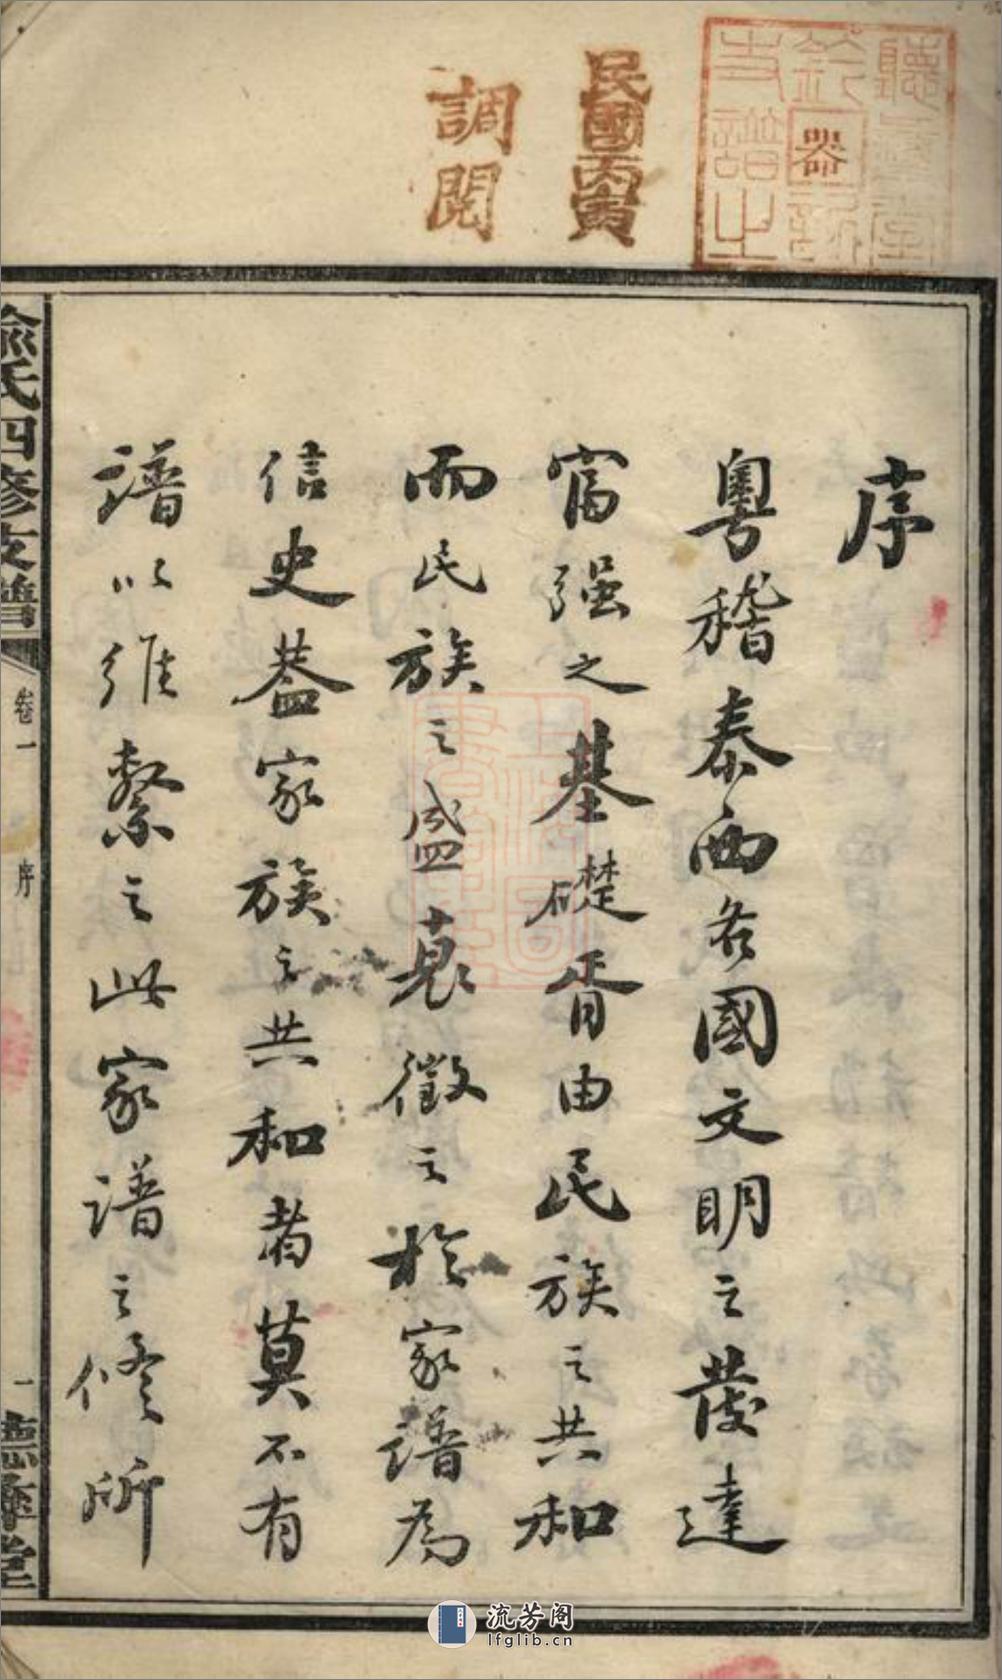 民國丙寅
調閱
序
粵稽泰西各國文明之發達
富强之基礎胥由民族之共和
而民族之盛衰徵之於家譜為
信史蓋家族之共和者莫不有
譜以維繫之此家譜之修所
俞氏四修支譜
卷一
序
一
聽彝堂
流芳阁
lfglib.cn